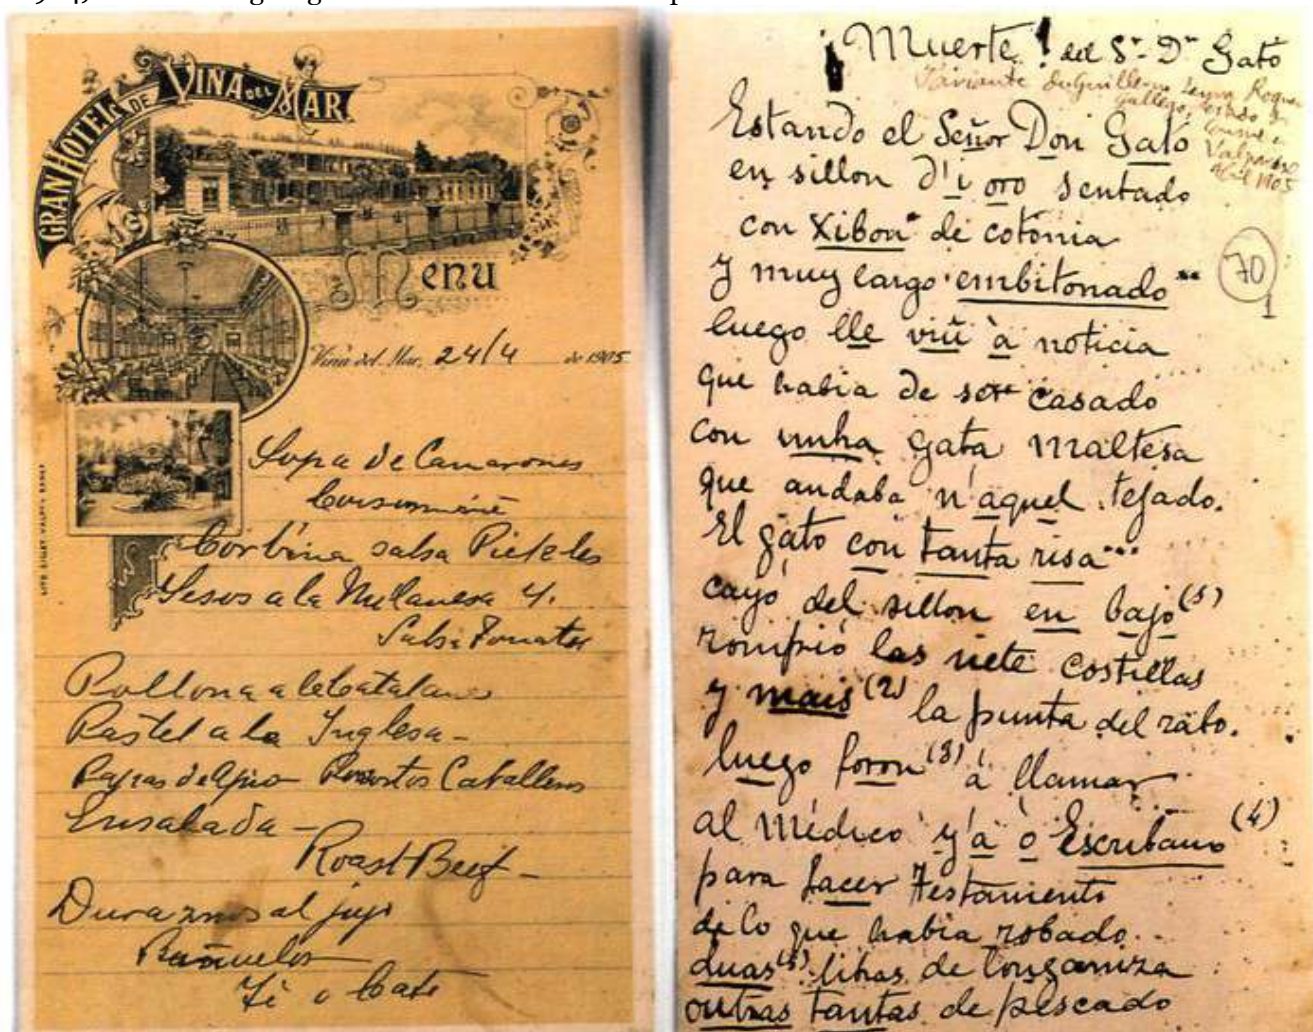 GRAN HOTEL DE VIÑA DEL MAR
Menu
Viña del Mar, 24/4 de 1905
Sopa de Camarones
Consommé
Corbina salsa
Sesos a la Milanesa y.
Salsa Tomates
a la Catalana
Pastel a la Inglesa -
de Apio Caballero
Ensalada -
Roast-Beef -
Duraznos al jugo
Buñuelos
Té o Café
¡Muerte! del Sr. Dn Gato
Variante de Guillermo Leyva
gallego,
Valparaíso
Abril 1905
Estando el Señor Don Gato
en sillon d'i oro sentado
con Xibon* de cotonia
y muy largo embitonado**
70
1
luego lle viũ à noticia
que habia de ser casado
con unha gata maltesa
que andaba n'aquel tejado.
El gato con tanta risa***
cayó del sillon en bajo (1)
rompió las siete costillas
y mais (2) la punta del rabo.
luego foron (3) à llamar
al Médico y'a o Escribano (4)
para facer testamento
di lo que habia robado.
duas (5) libras de longaniza
outras tantas de pescado